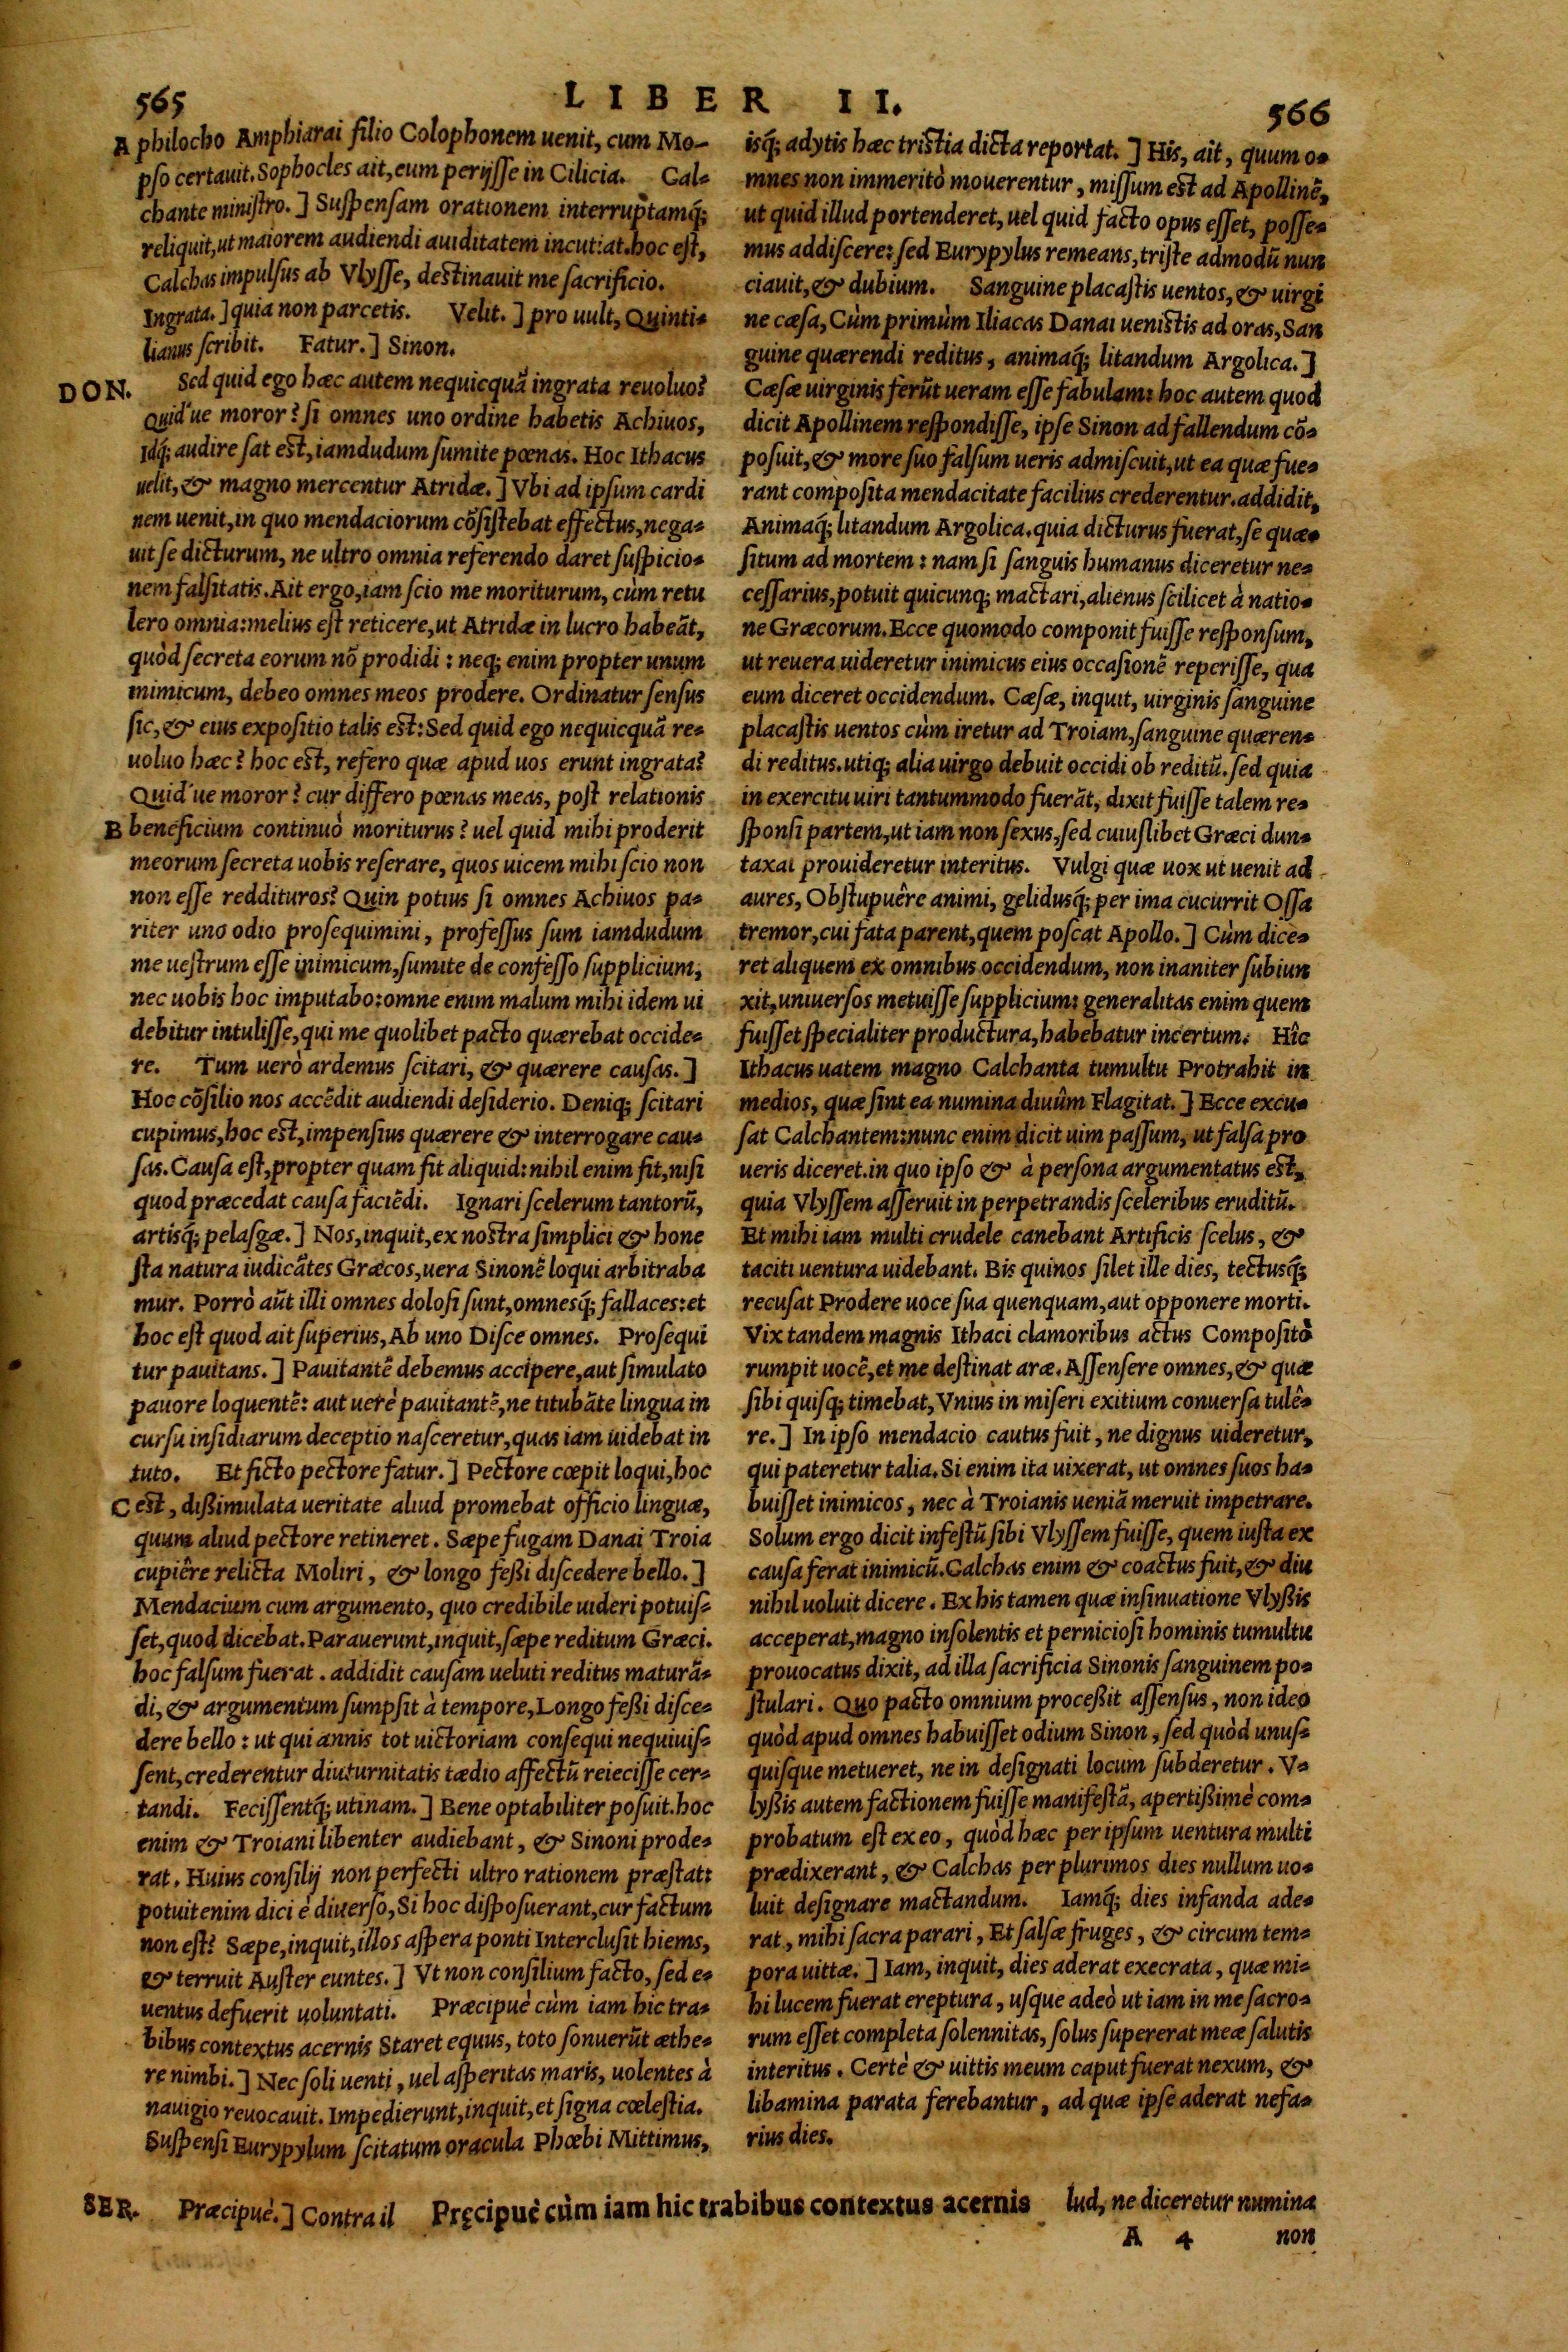 565
LIBER II.
566
A philocho Amphiarai filio Colophonem uenit, cum Mo-
pso certauit. Sophocles ait, eum perijſſe in Cilicia. Cal-
chante miniſtro.] Suſpenſam orationem interruptamq́;
reliquit, ut maiorem audiendi auiditatem incutiat. hoc eſt,
Calchas impulſus ab Vlyſſe, deſtinauit me ſacrificio.
Ingrata.] quia non parcetis. Velit.] pro uult, Quinti-
lianus ſcribit. Fatur.] Sinon.
DON. Sed quid ego hæc autem nequicquā ingrata reuoluo?
Quid'ue moror? ſi omnes uno ordine habetis Achiuos,
Idq́; audire ſat eſt, iamdudum ſumite pœnas. Hoc Ithacus
uelit, & magno mercentur Atridæ.] Vbi ad ipſum cardi
nem uenit, in quo mendaciorum cōſiſtebat effectus, nega-
uit ſe dicturum, ne ultro omnia referendo daret ſuſpicio-
nem falſitatis. Ait ergo, iam ſcio me moriturum, cùm retu
lero omnia: melius eſt reticere, ut Atridæ in lucro habeāt,
quòd ſecreta eorum nō prodidi: neq; enim propter unum
inimicum, debeo omnes meos prodere. Ordinatur ſenſus
ſic, & eius expoſitio talis eſt: Sed quid ego nequicquā re-
uoluo hæc? hoc eſt, refero quæ apud uos erunt ingrata?
Quid'ue moror? cur differo pœnas meas, poſt relationis
B beneficium continuò moriturus? uel quid mihi proderit
meorum ſecreta uobis reſerare, quos uicem mihi ſcio non
non eſſe reddituros? Quin potius ſi omnes Achiuos pa-
riter uno odio proſequimini, profeſſus ſum iamdudum
me ueſtrum eſſe inimicum, ſumite de confeſſo ſupplicium,
nec uobis hoc imputabo: omne enim malum mihi idem ui
debitur intuliſſe, qui me quolibet pacto quærebat occide-
re. Tum uerò ardemus ſcitari, & quærere cauſas.]
Hoc cōſilio nos accēdit audiendi deſiderio. Deniq; ſcitari
cupimus, hoc eſt, impenſius quærere & interrogare cau-
ſas. Cauſa eſt, propter quam fit aliquid: nihil enim fit, niſi
quod præcedat cauſa faciēdi. Ignari ſcelerum tantorū,
artisq́; pelaſgæ.] Nos, inquit, ex noſtra ſimplici & hone
ſta natura iudicātes Græcos, uera Sinonē loqui arbitraba
mur. Porrò aūt illi omnes doloſi ſunt, omnesq́; fallaces: et
hoc eſt quod ait ſuperius, Ab uno Diſce omnes. Proſequi
tur pauitans.] Pauitantē debemus accipere, aut ſimulato
pauore loquentē: aut uerè pauitantē, ne titubāte lingua in
curſu inſidiarum deceptio naſceretur, quas iam uidebat in
tuto. Et ficto pectore fatur.] Pectore cœpit loqui, hoc
C eſt, dißimulata ueritate aliud promebat officio linguæ,
quum aliud pectore retineret. Sæpe fugam Danai Troia
cupiêre relicta Moliri, & longo feßi diſcedere bello.]
Mendacium cum argumento, quo credibile uideri potuiſ-
ſet, quod dicebat. Parauerunt, inquit, ſæpe reditum Græci.
hoc falſum fuerat. addidit cauſam ueluti reditus maturā-
di, & argumentum ſumpſit à tempore, Longo feßi diſce-
dere bello: ut qui annis tot uictoriam conſequi nequiuiſ-
ſent, crederentur diuturnitatis tædio affectū reieciſſe cer-
tandi. Feciſſentq́; utinam.] Bene optabiliter poſuit. hoc
enim & Troiani libenter audiebant, & Sinoni prode-
rat. Huius conſilij non perfecti ultro rationem præſtat:
potuit enim dici è diuerſo, Si hoc diſpoſuerant, cur factum
non eſt? Sæpe, inquit, illos aſpera ponti Interclusit hiems,
& terruit Auſter euntes.] Vt non conſilium facto, ſed e-
uentus defuerit uoluntati. Præcipuè cùm iam hic tra-
bibus contextus acernis Staret equus, toto ſonuerūt æthe-
re nimbi.] Nec ſoli uenti, uel aſperitas maris, uolentes à
nauigio reuocauit. Impedierunt, inquit, et ſigna cœleſtia.
Suſpenſi Eurypylum ſcitatum oracula Phœbi Mittimus,
isq́; adytis hæc triſtia dicta reportat.] His, ait, quum o-
mnes non immeritò mouerentur, miſſum eſt ad Apollinē,
ut quid illud portenderet, uel quid facto opus eſſet, poſſe-
mus addiſcere: ſed Eurypylus remeans, triſte admodū nun
ciauit, & dubium. Sanguine placaſtis uentos, & uirgi
ne cæſa, Cùm primùm Iliacas Danai ueniſtis ad oras, San
guine quærendi reditus, animaq́; litandum Argolica.]
Cæſæ uirginis ferūt ueram eſſe fabulam: hoc autem quod
dicit Apollinem reſpondiſſe, ipſe Sinon ad fallendum cō-
poſuit, & more ſuo falſum ueris admiſcuit, ut ea quæ fue-
rant compoſita mendacitate facilius crederentur. addidit,
Animaq́; litandum Argolica. quia dicturus fuerat, ſe quæ-
ſitum ad mortem: nam ſi ſanguis humanus diceretur ne-
ceſſarius, potuit quicunq; mactari, alienus ſcilicet à natio-
ne Græcorum. Ecce quomodo componit fuiſſe reſponſum,
ut reuera uideretur inimicus eius occaſionē reperiſſe, qua
eum diceret occidendum. Cæſæ, inquit, uirginis ſanguine
placaſtis uentos cùm iretur ad Troiam, ſanguine quæren-
di reditus. utiq; alia uirgo debuit occidi ob reditū. ſed quia
in exercitu uiri tantummodo fuerāt, dixit fuiſſe talem re-
ſponſi partem, ut iam non ſexus, ſed cuiuſlibet Græci dun-
taxat prouideretur interitus. Vulgi quæ uox ut uenit ad
aures, Obſtupuêre animi, gelidusq́; per ima cucurrit Oſſa
tremor, cui fata parent, quem poſcat Apollo.] Cùm dice-
ret aliquem ex omnibus occidendum, non inaniter ſubiun
xit, uniuerſos metuiſſe ſupplicium: generalitas enim quem
fuiſſet ſpecialiter productura, habebatur incertum. Hîc
Ithacus uatem magno Calchanta tumultu Protrahit in
medios, quæ ſint ea numina diuûm Flagitat.] Ecce excu-
ſat Calchantem: nunc enim dicit uim paſſum, ut falſa pro
ueris diceret. in quo ipſo & à perſona argumentatus eſt,
quia Vlyſſem aſſeruit in perpetrandis ſceleribus eruditū.
Et mihi iam multi crudele canebant Artificis ſcelus, &
taciti uentura uidebant. Bis quinos ſilet ille dies, tectusq́;
recuſat Prodere uoce ſua quenquam, aut opponere morti.
Vix tandem magnis Ithaci clamoribus actus Compoſitò
rumpit uocē, et me deſtinat aræ. Aſſenſere omnes, & quæ
ſibi quiſq; timebat, Vnius in miſeri exitium conuerſa tulê-
re.] In ipſo mendacio cautus fuit, ne dignus uideretur,
qui pateretur talia. Si enim ita uixerat, ut omnes ſuos ha-
buiſſet inimicos, nec à Troianis ueniā meruit impetrare.
Solum ergo dicit infeſtū ſibi Vlyſſem fuiſſe, quem iuſta ex
cauſa ferat inimicū. Calchas enim & coactus fuit, & diu
nihil uoluit dicere. Ex his tamen quæ inſinuatione Vlyßis
acceperat, magno inſolentis et pernicioſi hominis tumultu
prouocatus dixit, ad illa ſacrificia Sinonis ſanguinem po-
ſtulari. Quo pacto omnium proceßit aſſenſus, non ideo
quòd apud omnes habuiſſet odium Sinon, ſed quòd unuſ-
quiſque metueret, ne in deſignati locum ſubderetur. V-
lyßis autem factionem fuiſſe manifeſtā, apertißimè com-
probatum eſt ex eo, quòd hæc per ipſum uentura multi
prædixerant, & Calchas per plurimos dies nullum uo-
luit deſignare mactandum. Iamq́; dies infanda ade-
rat, mihi ſacra parari, Et ſalſæ fruges, & circum tem-
pora uittæ.] Iam, inquit, dies aderat execrata, quæ mi-
hi lucem fuerat ereptura, uſque adeò ut iam in me ſacro-
rum eſſet completa ſolennitas, ſolus ſupererat meæ ſalutis
interitus. Certè & uittis meum caput fuerat nexum, &
libamina parata ferebantur, ad quæ ipſe aderat nefa-
rius dies.
SER. Præcipuè.] Contra il
Pręcipuè cùm iam hic trabibus contextus acernis
lud, ne diceretur numina
A 4 non